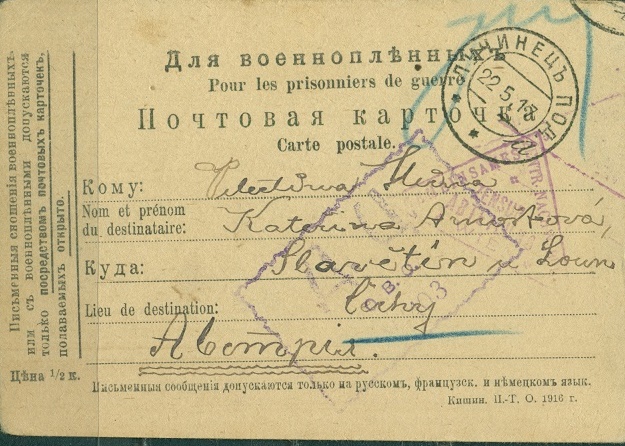 Письменныя сношенія военноплѣнныхъ
или съ военноплѣнными допускаются
только посредствомъ почтовыхъ карточекъ,
подаваемыхъ открыто.
Цѣна 1/2 к.
Для военноплѣнныхъ
Pour les prisonniers de guerre
Почтовая карточка
Carte postale.
22 5 17
Кому:
Nom et prénom
du destinataire: Kateřina
Куда: Slavětín u Loun
Lieu de destination: Čechy
Австрія.
Письменныя сообщенія допускаются только на русскомъ, французск. и нѣмецкомъ язык.
Кишин. П.-Т. О. 1916 г.